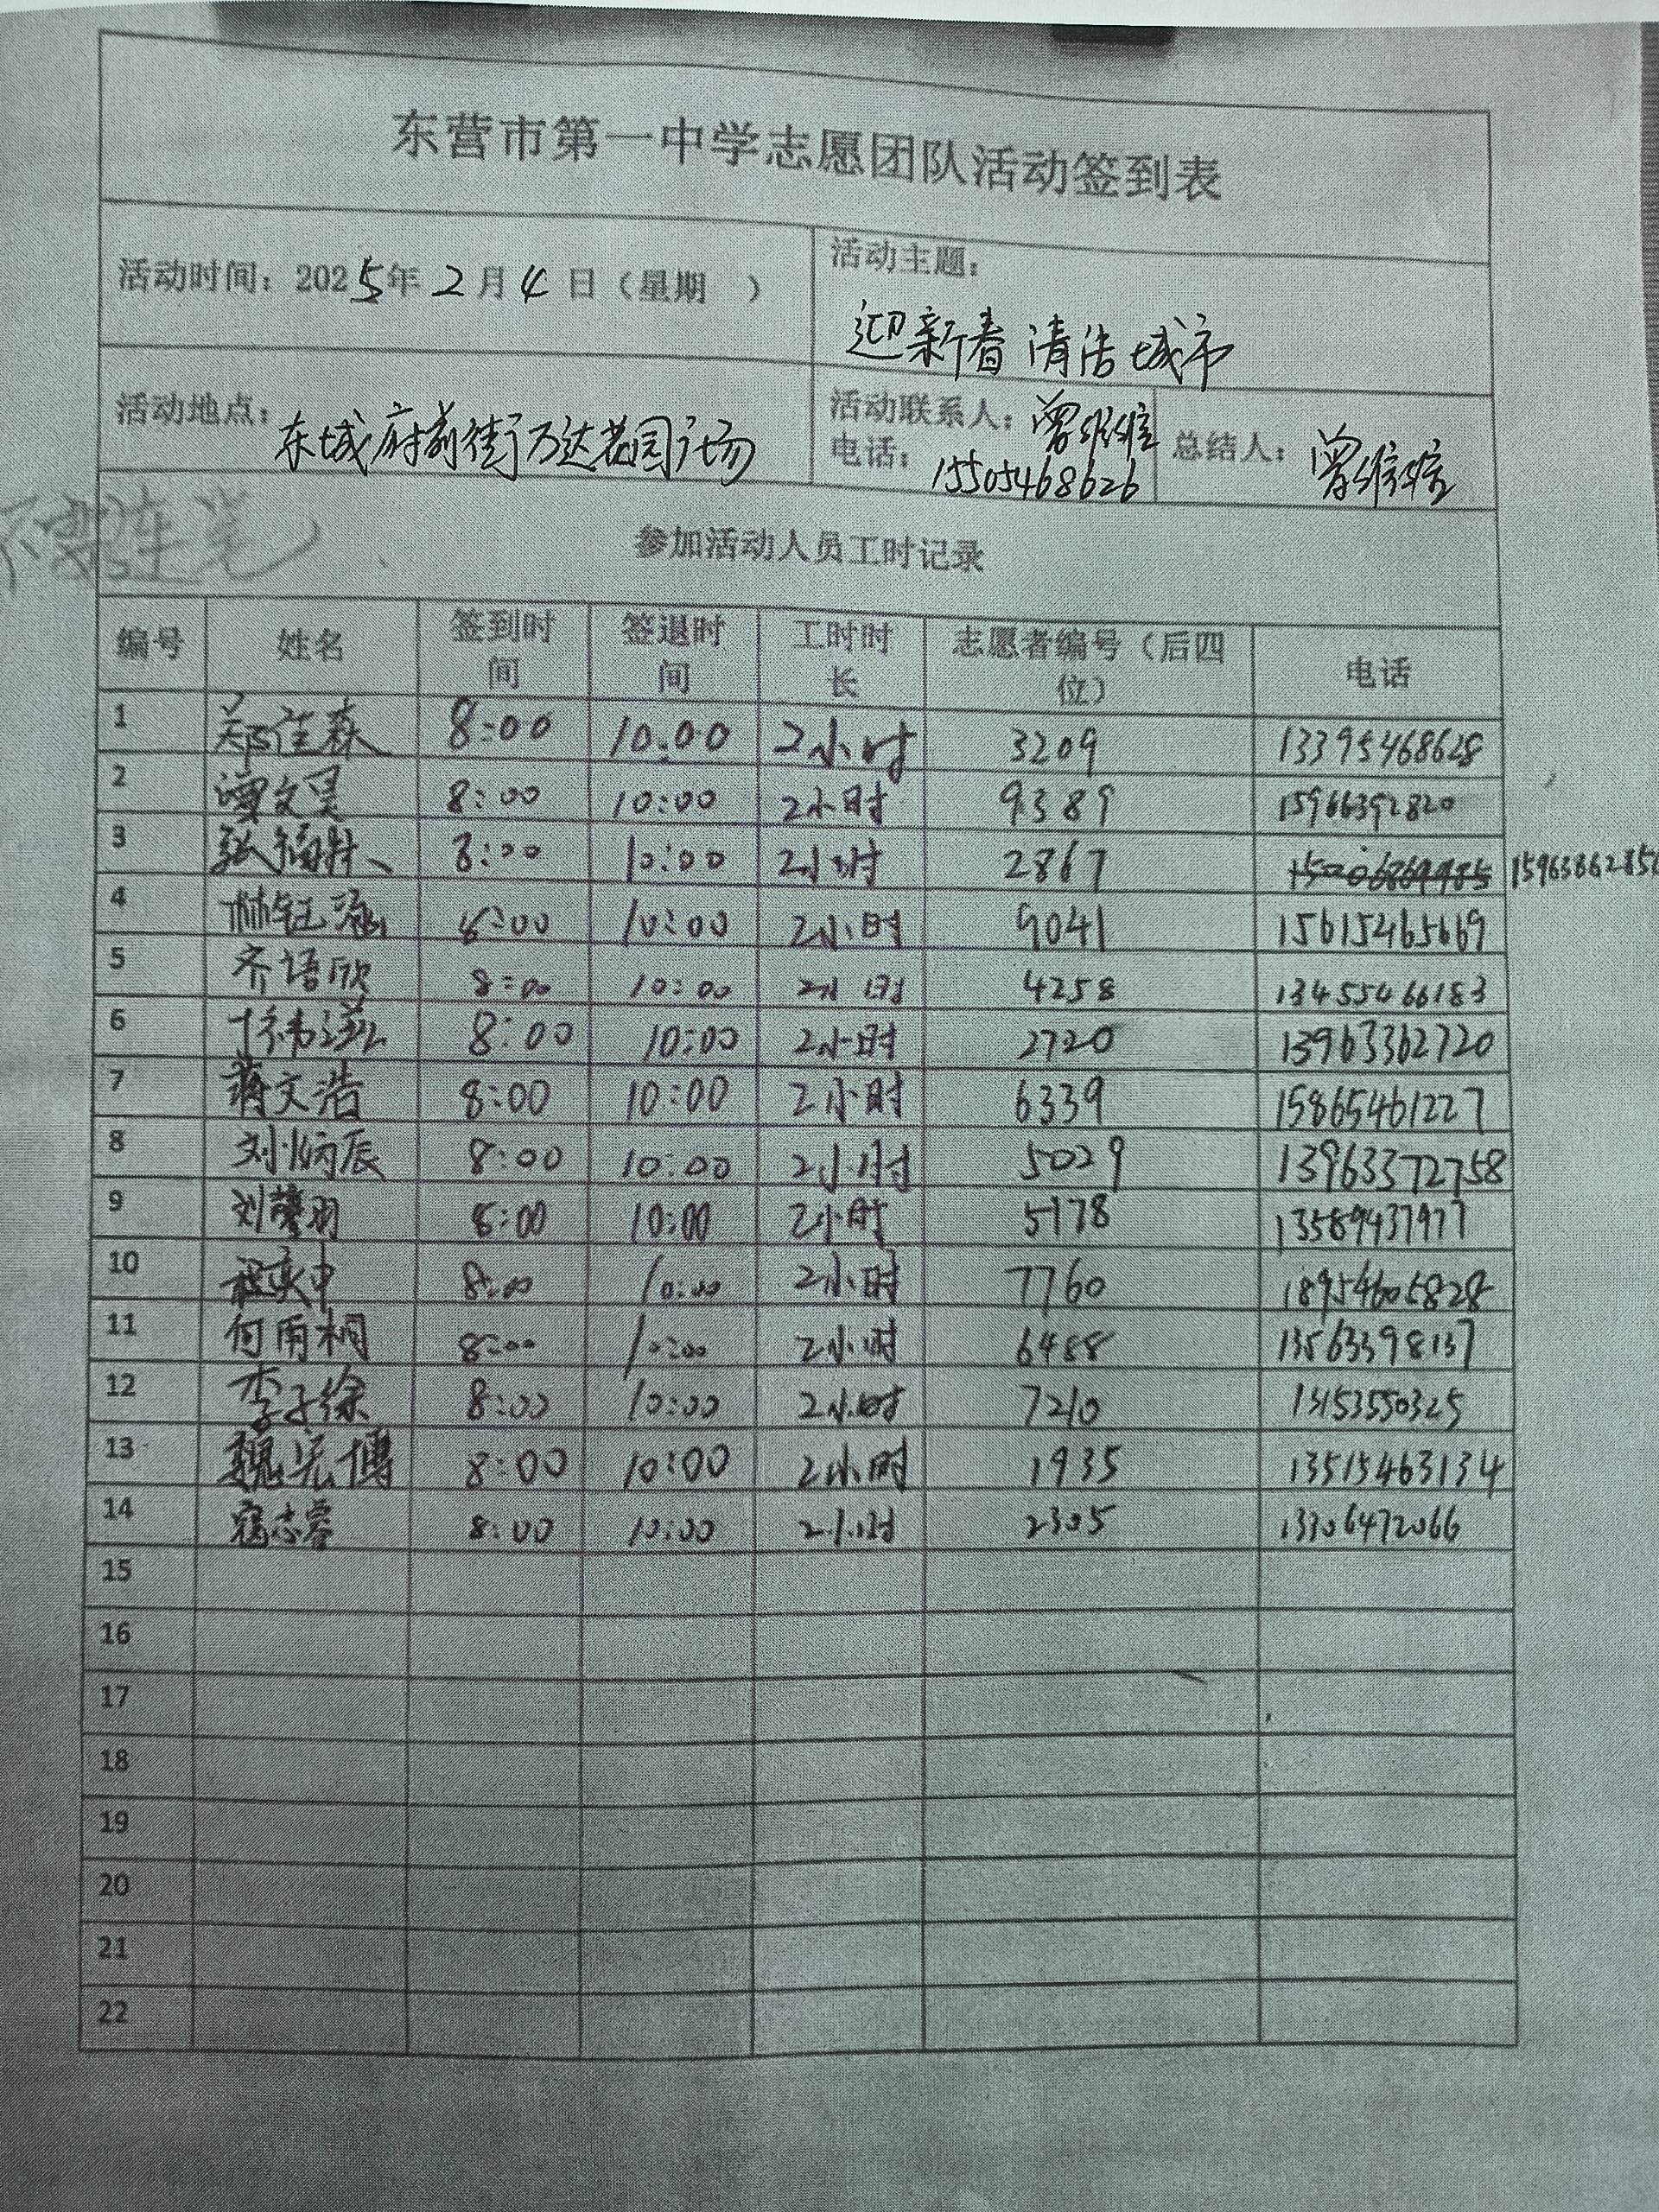 东营市第一中学志愿团队活动签到表
活动时间：2025年2月4日（星期 ）
活动主题：
迎新春 清洁城市
活动地点：东城府前街万达花园广场
活动联系人：曾维维
电话：15505468626
总结人：曾维维
参加活动人员工时记录
编号 姓名 签到时间 签退时间 工时时长 志愿者编号（后四位） 电话
1 郑佳森 8:00 10:00 2小时 3209 13395468628
2 文昊 8:00 10:00 2小时 9389 15966392820
3 张 8:00 10:00 2小时 2867
4 林钰涵 8:00 10:00 2小时 9041 15615465669
5 齐语欣 8:00 10:00 2小时 4258 13455466183
6 8:00 10:00 2小时 2720 13963362720
7 蒋文浩 8:00 10:00 2小时 6339 15865461227
8 刘炳辰 8:00 10:00 2小时 5029 13963372758
9 刘馨羽 8:00 10:00 2小时 5178 13589437977
10 程奕中 8:00 10:00 2小时 7760 18954605828
11 何雨桐 8:00 10:00 2小时 6488 13563398137
12 李子徐 8:00 10:00 2小时 7210 13153550325
13 魏宏博 8:00 10:00 2小时 1935 13515463134
14 寇志蓉 8:00 10:00 2小时 2305 13306472066
15
16
17
18
19
20
21
22